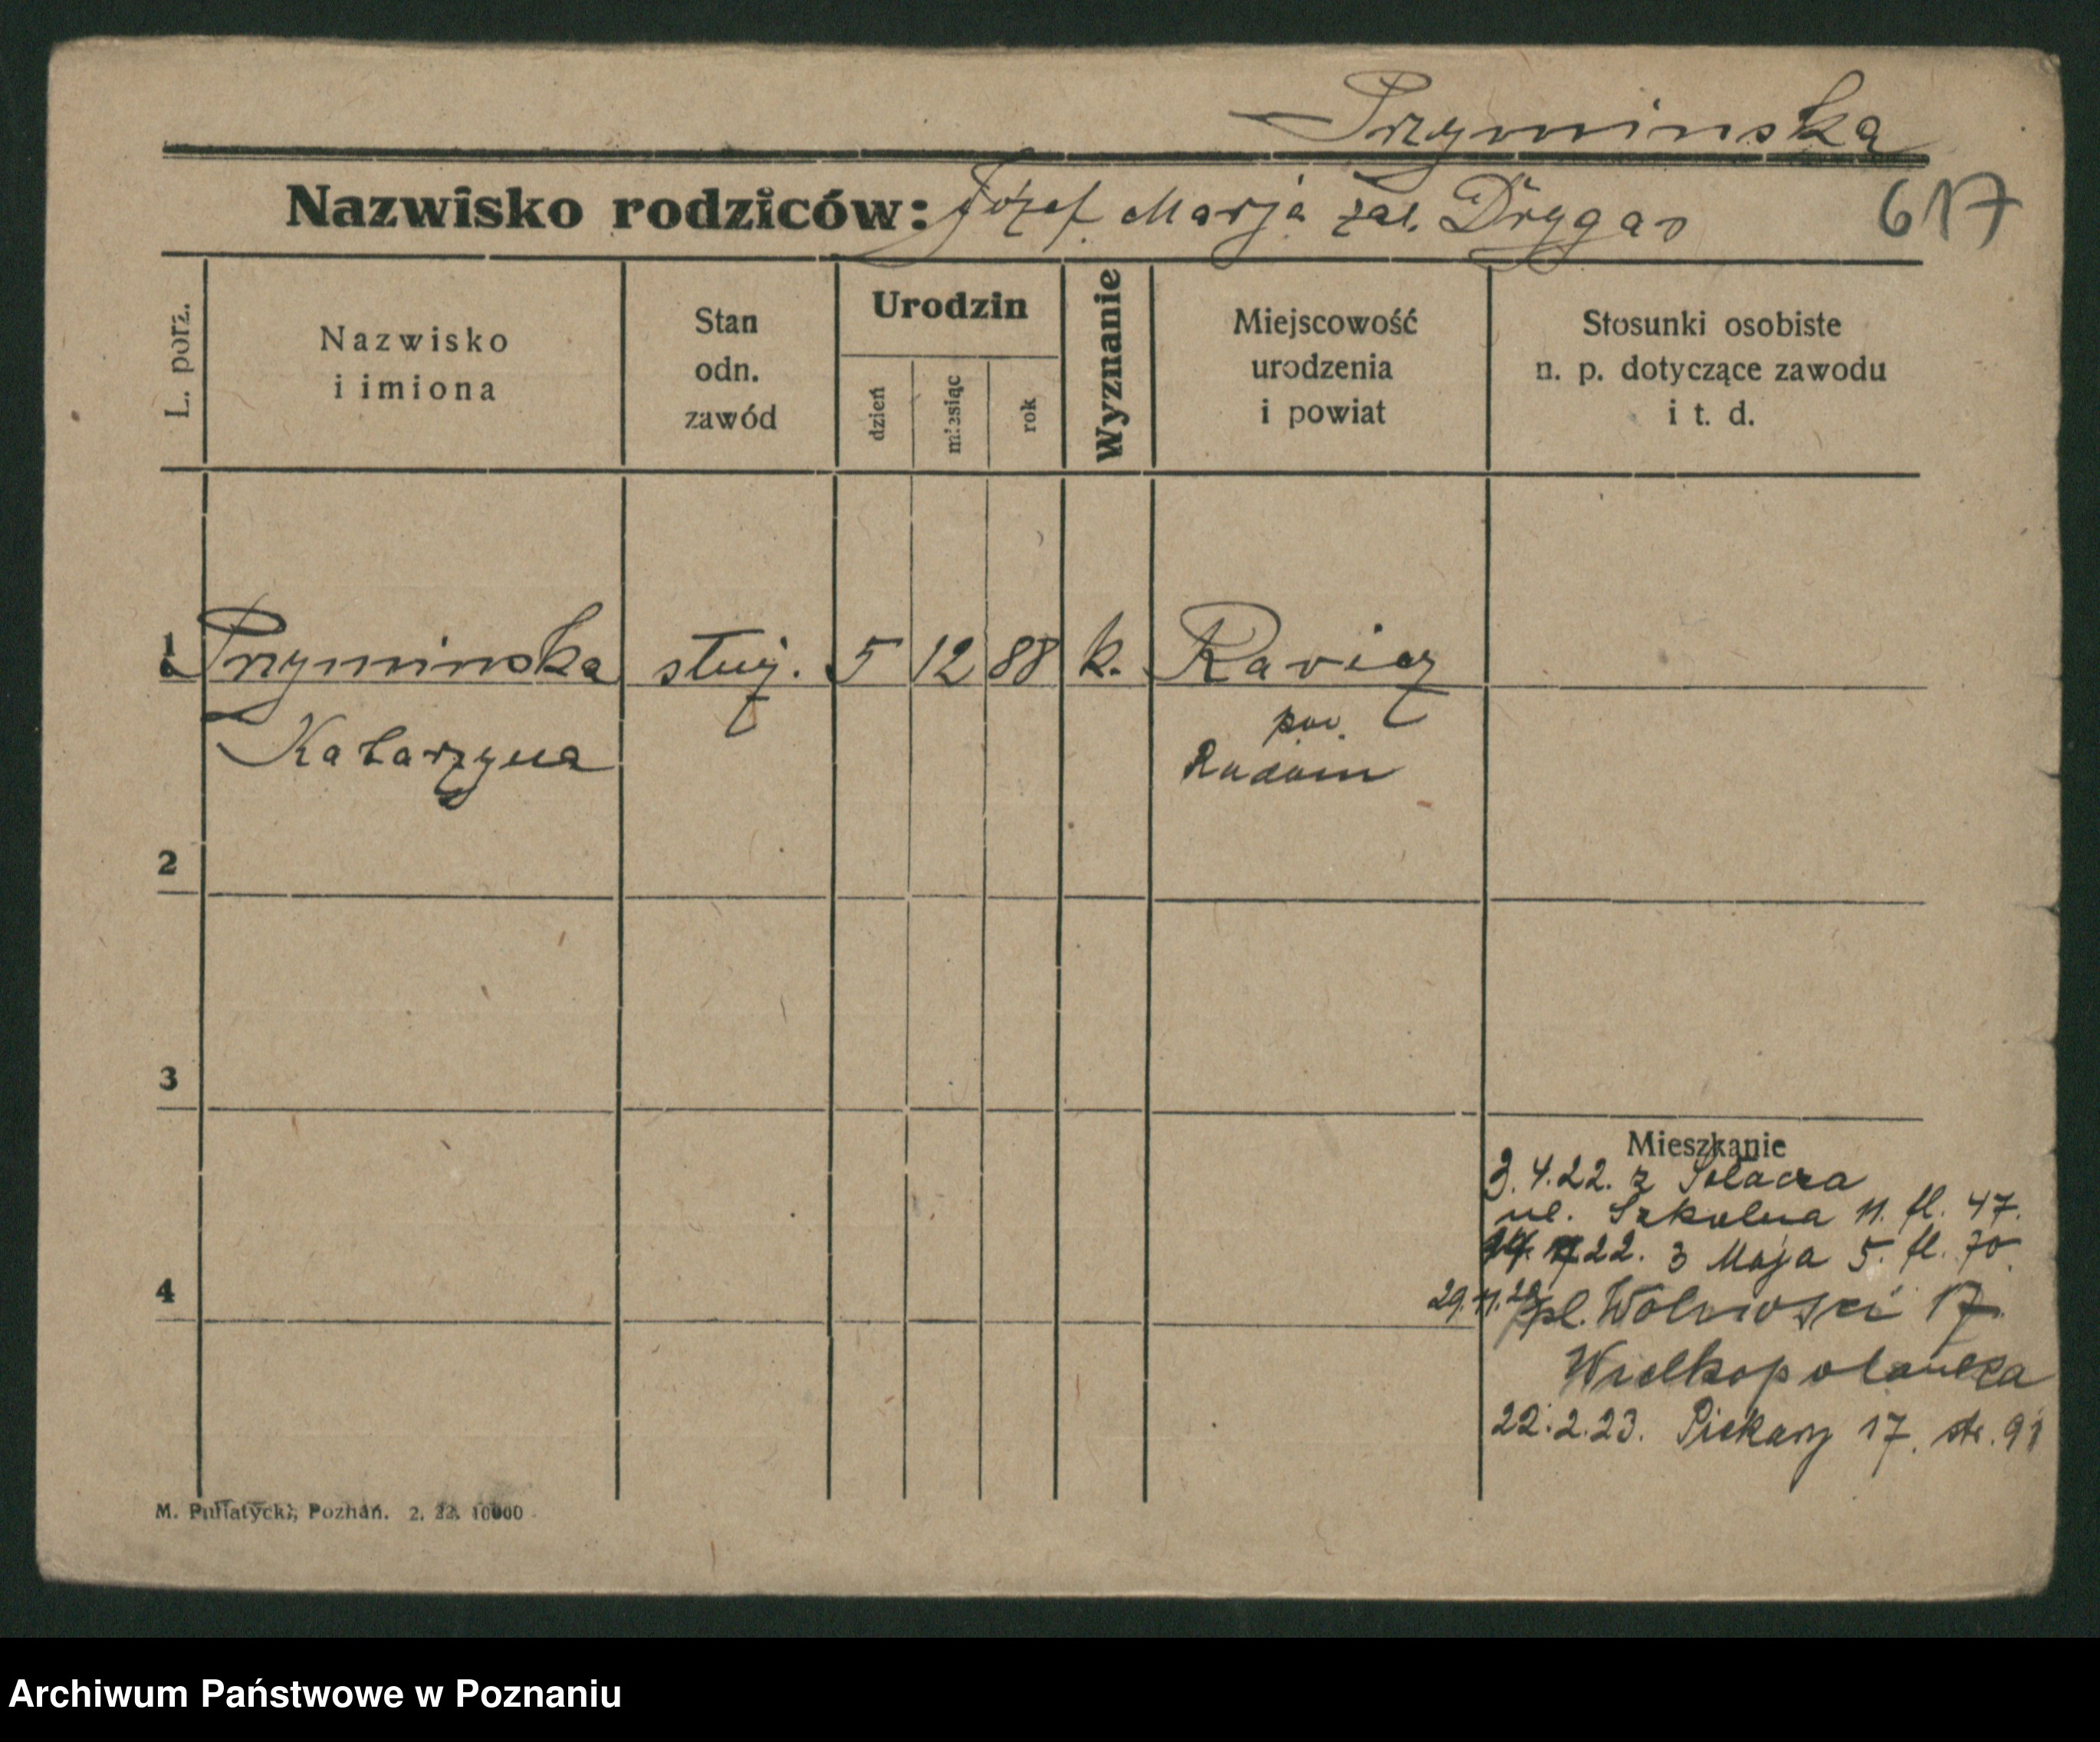 Przyminska
617
Nazwisko rodziców: Józef Marja zal. Drygas
L. porz.
Nazwisko
i imiona
Stan
odn.
zawód
Urodzin
dzień
miesiąc
rok
Wyznanie
Miejscowość
urodzenia
i powiat
Stosunki osobiste
n. p. dotyczące zawodu
i t. d.
1 Przyminska służ. 5 12 88 k. Ravicz
Katarzyna
pow.
Radom
2
3
4
Mieszkanie
3.4.22. z Sołacza
ul. Szkolna 11. fl. 47.
22. 3 Maja 5. fl. 70.
29.11.22 pl. Wolności 17
Wielkopolanka
22.2.23. Piekary 17. str. 91
M. Putiatycki, Poznań. 2. 22. 10000
Archiwum Państwowe w Poznaniu